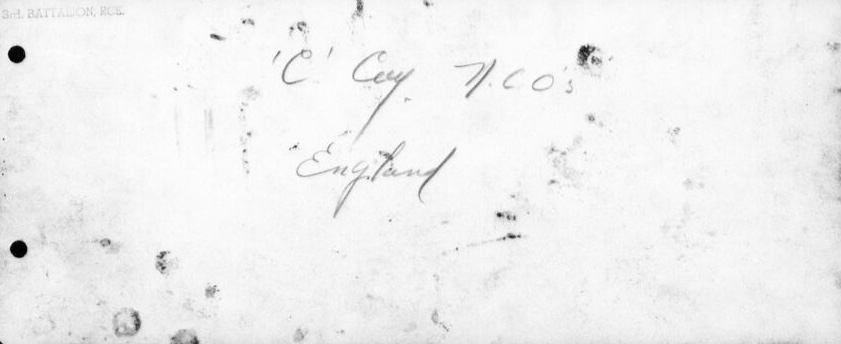 3rd. BATTALION, RCE.
'C' Coy. N.C.O's
England